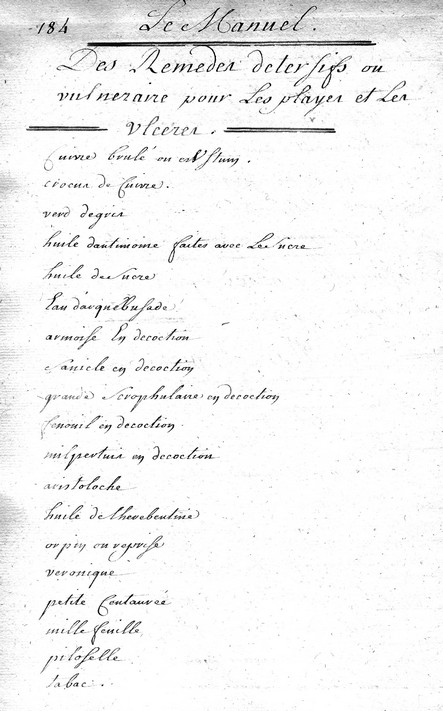 184 Le Manuel.
Des Remedes detersifs ou
vulneraire pour Les playes et Les
Vlceres.
Cuivre brulé ou æs Vstum.
crocus de Cuivre.
verd degris
huile dantimoine faites avec Le Sucre
huile de Sucre
Eau darquebusade
armoise En decoction
sanicle en decoction
grande Scrophulaire en decoction
fenouil en decoction
milpertuis en decoction
aristoloche
huile de therebentine
orpin ou reprise
veronique
petite Centaurée
mille feuille
piloselle
tabac.